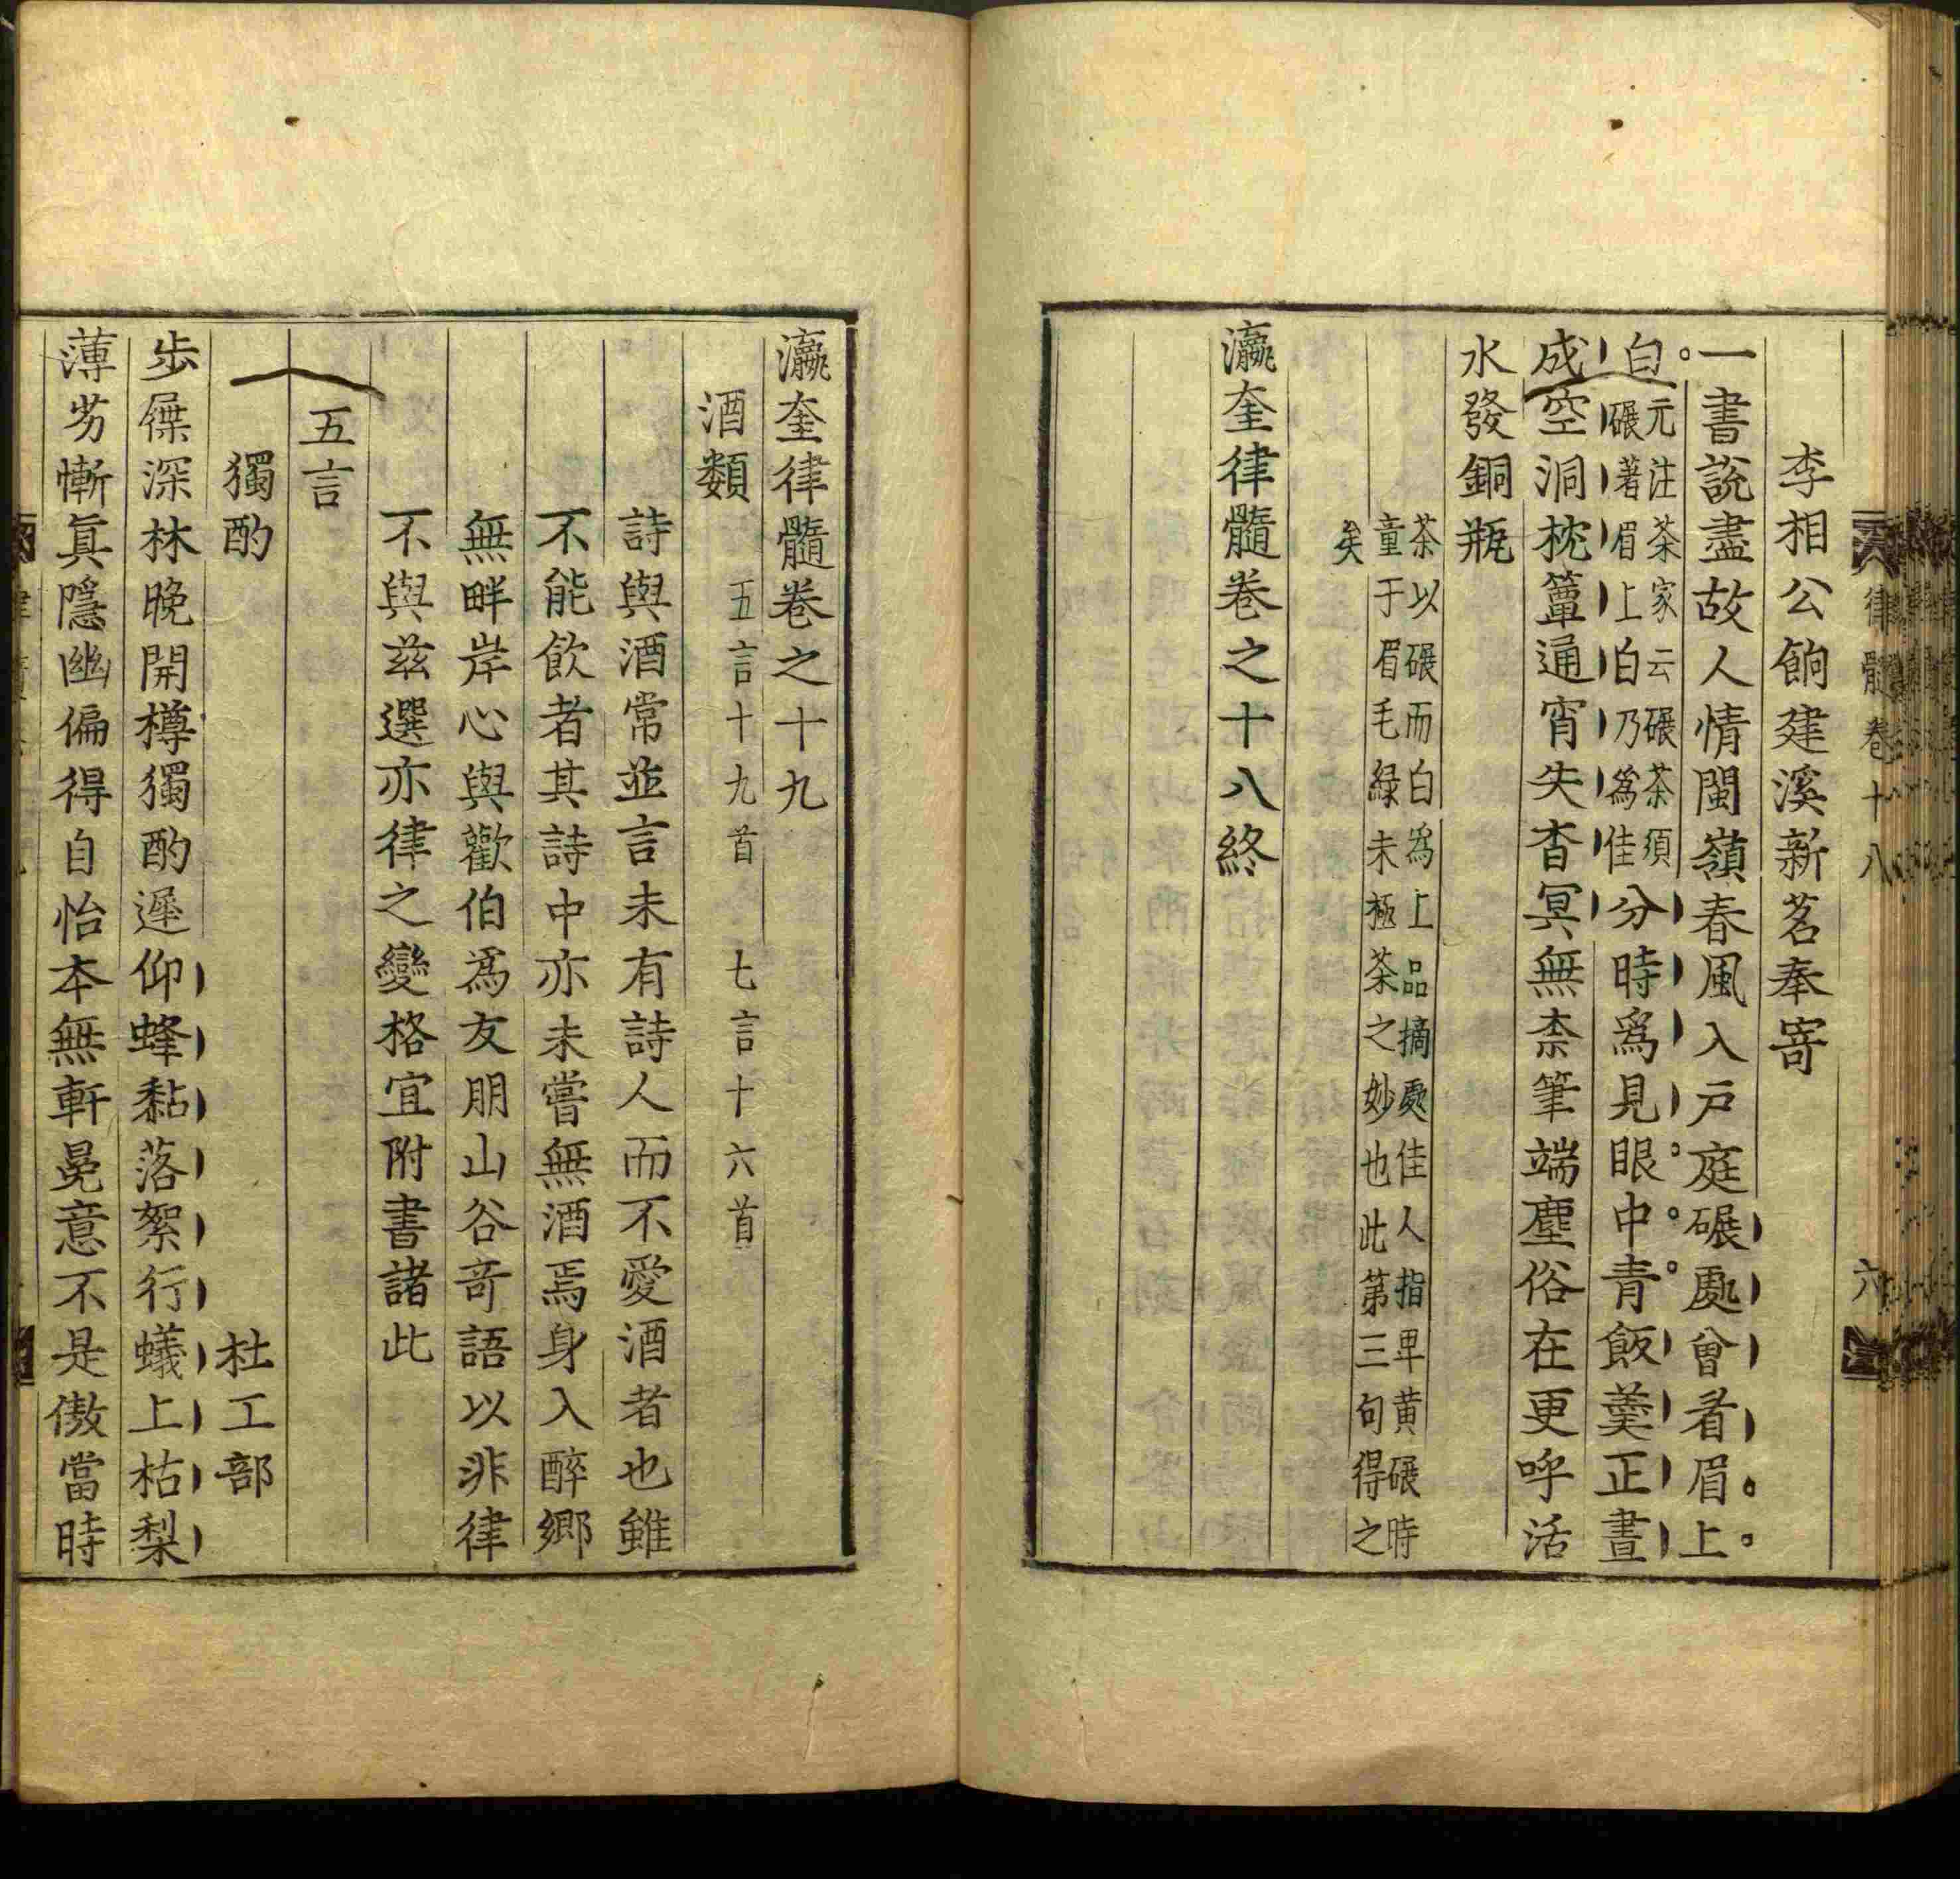 律髓卷十八
六
李相公餉建溪新茗奉寄
一書說盡故人情閩嶺春風入戸庭碾處曾看眉上
白元注茶家云碾茶須碾著眉上白乃爲佳分時爲見眼中青飯羹正晝
成空洞枕簟通宵失杳冥無柰筆端塵俗在更呼活
水發銅瓶
茶以碾而白爲上品摘處佳人指甲黄碾時
童于眉毛緑未極茶之妙也此第三句得之
矣
瀛奎律髓卷之十八終
瀛奎律髓卷之十九
酒類 五言十九首 七言十六首
詩與酒常並言未有詩人而不愛酒者也雖
不能飲者其詩中亦未嘗無酒焉身入醉鄉
無畔岸心與歡伯爲友朋山谷竒語以非律
不與兹選亦律之變格宜附書諸此
五言
獨酌 杜工部
歩屧深林晚開樽獨酌遲仰蜂黏落絮行蟻上枯梨
薄劣慚眞隱幽偏得自怡本無軒冕意不是傲當時